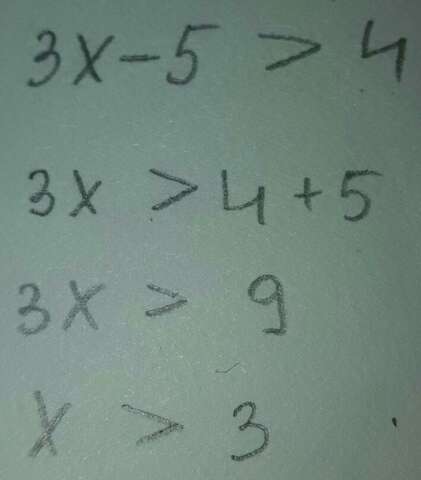 3x-5 > 4
3x > 4+5
3x > 9
x > 3